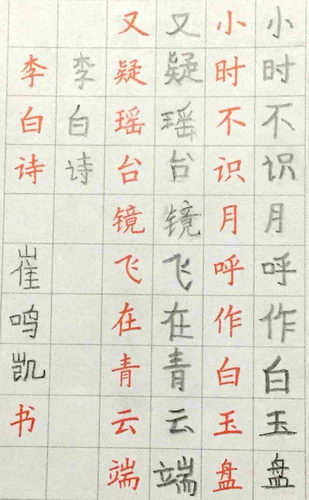 小时不识月呼作白玉盘
小时不识月呼作白玉盘
又疑瑶台镜飞在青云端
又疑瑶台镜飞在青云端
李白诗
李白诗 崔鸣凯书